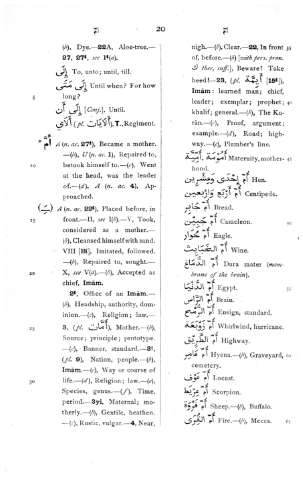 ام 20 ام
(b), Dyn.—22A, Aloe-tree.—
27, 27ª, see 1ª(a).
إِلَى To, unto; until, till.
إِلَى مَتَى Until when? For how
long?
إِلَى أَنْ [Conj.], Until.
أَلَاي (pl. أَلَايَات), T., Regiment.
أَمَّ A (n. ac. 27ª), Became a mother.
—(b), U (n. ac. 1), Repaired to,
betook himself to.—(c), Went
at the head, was the leader
of.—(d), A (n. ac. 4), Ap-
proached.
A (n. ac. 22ª), Placed before, in
front.—II, see I(b).—V, Took,
considered as a mother.—
(b), Cleansed himself with sand.
VIII [28], Imitated, followed.
—(b), Repaired to, sought.—
X, see V(a).—(b), Accepted as
chief, Imám.
2ª, Office of an Imám.—
(b), Headship, authority, dom-
inion.—(c), Religion; law.—
3, (pl. أُمَّات), Mother.—(b),
Source; principle; prototype.
—(c), Banner, standard.—3ª,
(pl. 9), Nation, people.—(b),
Imám.—(c), Way or course of
life.—(d), Religion; law.—(e),
Species, genus.—(f), Time,
period.—3yi, Maternal; mo-
therly.—(b), Gentile, heathen.
—(c), Rustic, vulgar.—4, Near,
nigh.—(b), Clear.—22, In front
of, before.—(b) [with pers. pron.
& thee, suff.], Beware! Take
heed!—23, (pl. أَئِمَّة [15ª]),
Imám: learned man; chief,
leader; exemplar; prophet;
khalif; general.—(b), The Ku-
rán.—(c), Proof, argument;
example.—(d), Road; high-
way.—(e), Plumber's line.
أُمُومَة, أُمِّيَّة Maternity, mother-
hood.
أُمّ إِحْدَى وَعِشْرِين Hen.
أُمّ أَرْبَع وَأَرْبَعِين Centipede.
أُمّ جَابِر Bread.
أُمّ حُبَيْن Cameleon.
أُمّ حُوَار Eagle.
أُمّ الْخَبَائِث Wine.
أُمّ الدِّمَاغ Dura mater (mem-
brane of the brain).
أُمّ الدُّنْيَا Egypt.
أُمّ الرَّأْس Brain.
أُمّ الرُّمْح Ensign, standard.
أُمّ زَوْبَعَة Whirlwind, hurricane.
أُمّ الطَّرِيق Highway.
أُمّ عَامِر Hyena.—(b), Graveyard,
cemetery.
أُمّ عَوْف Locust.
أُمّ عِرْيَط Scorpion.
أُمّ فَرْوَة Sheep.—(b), Buffalo.
أُمّ الْقُرَى Fire.—(b), Mecca.